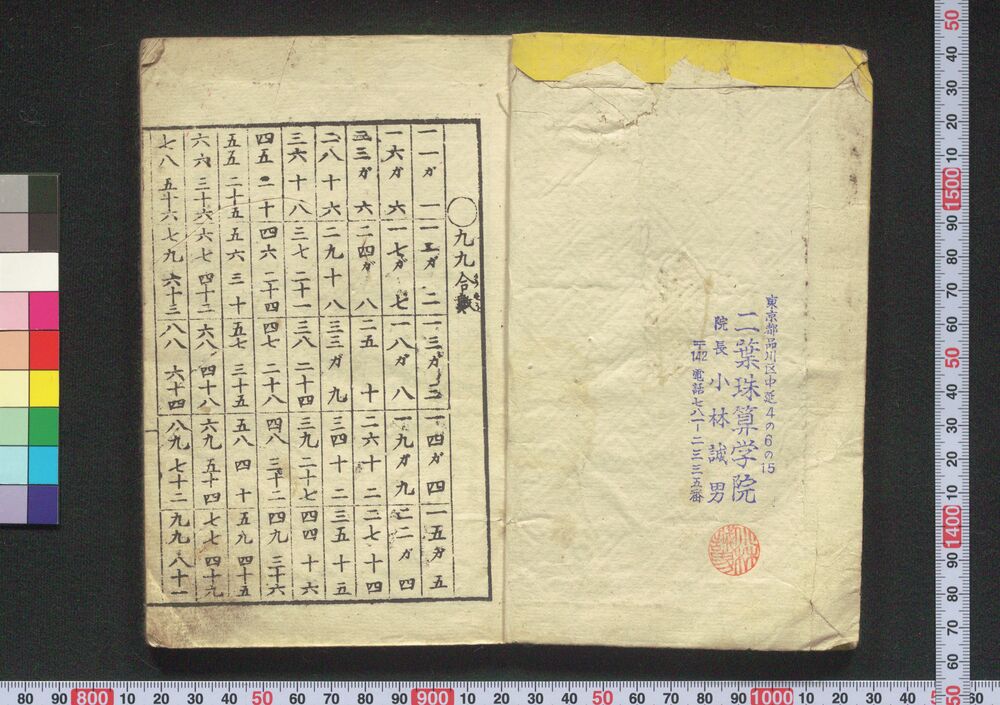 東京都品川区中延4の6の15
二葉珠算学院
院長 小林誠男
〒142 電話七八一二三三五番
◯九九合数
一一ガ 一 一二ガ 二 一三ガ 三 一四ガ 四 一五ガ 五
一六ガ 六 一七ガ 七 一八ガ 八 一九ガ 九 二二ガ 四
二三ガ 六 二四ガ 八 二五 十 二六 十二 二七 十四
二八 十六 二九 十八 三三ガ 九 三四 十二 三五 十五
三六 十八 三七 二十一 三八 二十四 三九 二十七 四四 十六
四五 二十 四六 二十四 四七 二十八 四八 三十二 四九 三十六
五五 二十五 五六 三十 五七 三十五 五八 四十 五九 四十五
六六 三十六 六七 四十二 六八 四十八 六九 五十四 七七 四十九
七八 五十六 七九 六十三 八八 六十四 八九 七十二 九九 八十一
50
40
30
20
10
1500
90
80
70
60
50
40
30
20
10
1400
90
80
70
60
50
80 90 800 10 20 30 40 50 60 70 80 90 900 10 20 30 40 50 60 70 80 90 1000 10 20 30 40